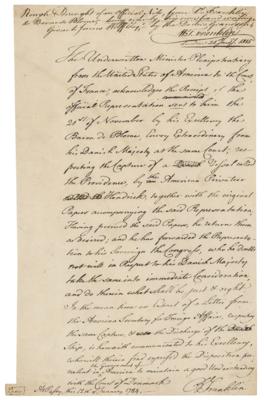 Rough Draught of an Official Note from Dr Franklin
to Baron de Blome,
Wm. T. Franklin
The Underwritten Minister Plenipotentiary
from the United States of America to the Court
of France, acknowledges the Receipt of the
official Representation sent to him the
20th of November by his Excellency the
Baron de Blome Envoy Extraordinary from
his Danish Majesty at the same Court; res-
pecting the Capture of a Vessel called
the Providence, by the American Privateer
Hendrick; together with the original
Papers accompanying the said Representation.
Having perused the said Papers, he returns them
as desired; and he has forwarded the Represen-
tation to his Sovereign the Congress, who he doubts
not will in Respect to his Danish Majesty
take the same into immediate Consideration,
and do therein what shall be just & right.
In the mean time an Extract of a Letter from
the American Secretary for Foreign Affairs, respecting
the same Capture, & the Discharge of the
Ship, is herewith communicated to his Excellency,
wherein is expressed the Disposition
of the Government
in America to maintain a good understanding
with the Court of Denmark.
B Franklin
At Passy, this 13th of January 1784.